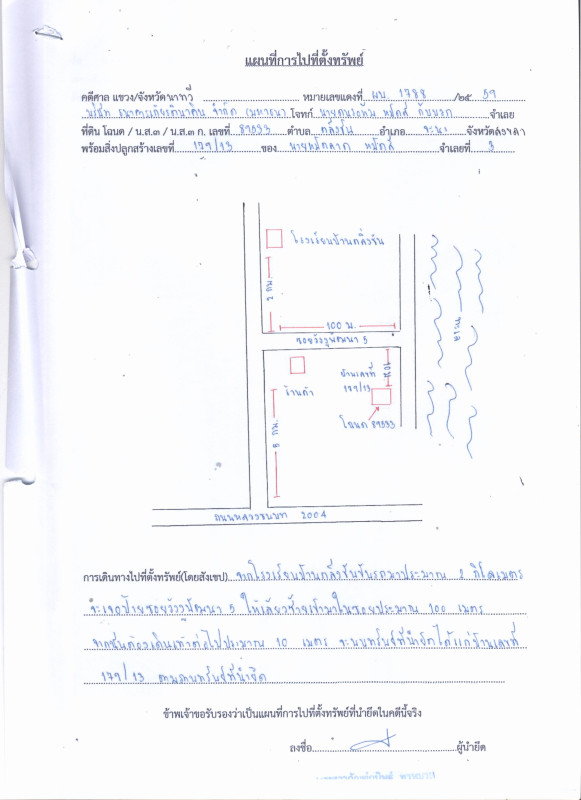 แผนที่การไปที่ตั้งทรัพย์
คดีศาล แขวง/จังหวัดนาทวี หมายเลขแดงที่ ผบ. 1788 /๒๕ 59
บริษัท ธนาคารเกียรตินาคิน จำกัด (มหาชน) โจทก์ จำเลย
ที่ดิน โฉนด / น.ส.๓ / น.ส.๓ ก. เลขที่ 89533 ตำบล ตลิ่งชัน อำเภอ จะนะ จังหวัดสงขลา
พร้อมสิ่งปลูกสร้างเลขที่ 179/13 ของ จำเลยที่ 3
โรงเรียนบ้านตลิ่งชัน
2 กม.
100 ม.
ซอยวังงูพัฒนา 5
บ้านเลขที่
179/13
ร้านค้า
โฉนด 89533
5 กม.
ถนนหลวงชนบท 2004
การเดินทางไปที่ตั้งทรัพย์(โดยสังเขป) จากโรงเรียนบ้านตลิ่งชันขับรถมาประมาณ 2 กิโลเมตร
จะเจอป้ายซอยวังงูพัฒนา 5 ให้เลี้ยวซ้ายเข้ามาในซอยประมาณ 100 เมตร
จากนั้นต้องเดินเท้าต่อไปประมาณ 10 เมตร จะพบทรัพย์ที่นำยึดได้แก่บ้านเลขที่
179/13 ตามภาพทรัพย์ที่นำยึด
ข้าพเจ้าขอรับรองว่าเป็นแผนที่การไปที่ตั้งทรัพย์ที่นำยึดในคดีนี้จริง
ลงชื่อ ผู้นำยึด